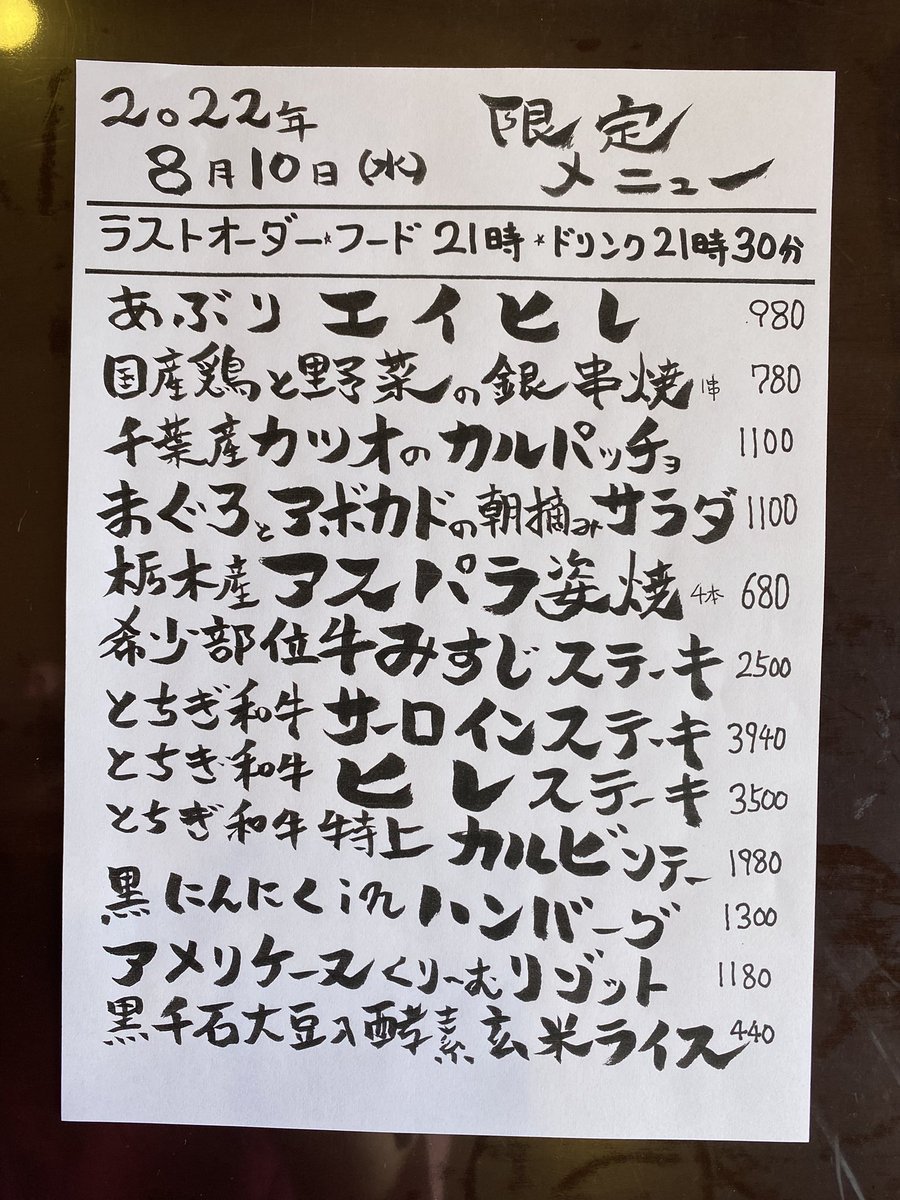 2022年 限定
8月10日(水) メニュー
ラストオーダー★フード21時★ドリンク21時30分
あぶりエイヒレ 980
国産鶏と野菜の銀串焼 1串 780
千葉産カツオのカルパッチョ 1100
まぐろとアボカドの朝摘みサラダ 1100
栃木産アスパラ姿焼 4本 680
希少部位牛みすじステーキ 2500
とちぎ和牛サーロインステーキ 3940
とちぎ和牛ヒレステーキ 3500
とちぎ和牛特上カルビソテー 1980
黒にんにくinハンバーグ 1300
アメリケーヌくりーむリゾット 1180
黒千石大豆入酵素玄米ライス 440